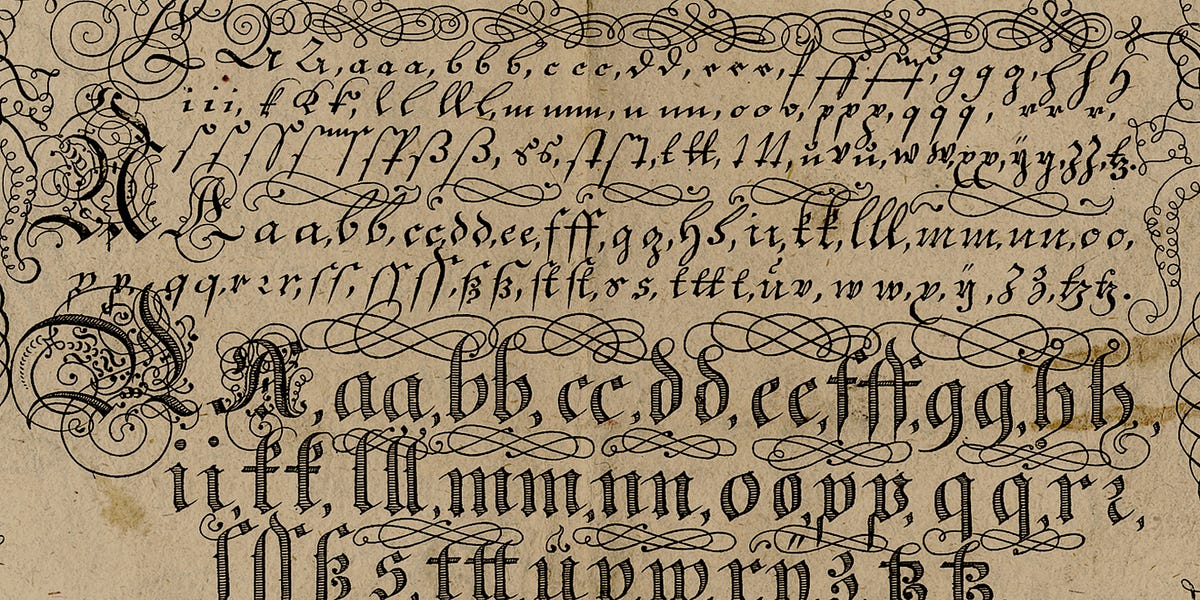 A A, a a a, b b b, c c c, d d, e e e, f ff ff, g g g, h h h
i i i, k k k, l l ll l, m m m, n nn, o o o, p p p, q q q, r r r,
ſ ſ ſſ ſſ ſp ß ß, s s, ſt ſt, t tt, t tt, u v ů, w w, x x, ÿ y, z z, tz.
A a a, b b, c c, d d, e e, f ff, g g, h h, i i, k k, l l l, m m, n n, o o,
p p, q q, r r r, ſ ſ, ſſ ſſ, ß ß, ſt ſt, s s, t t t t, ů v, w w, x, ÿ, z z, tz tz.
A, a a, b b, c c, d d, e e, f ff, g g, h h,
i i, k k, l ll, m m, n n, o o, p p, q q, r r,
ſ ſſ ß s, t tt ů v w x ÿ z tz tz